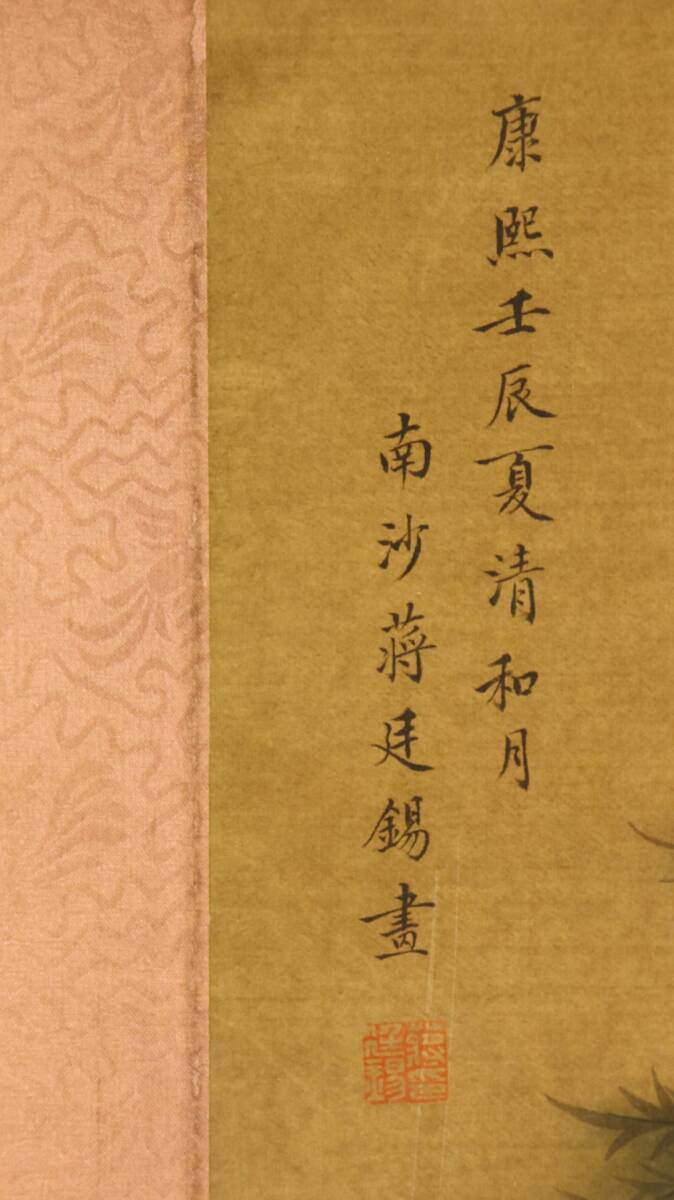 康熙壬辰夏清和月
南沙蒋廷錫畫